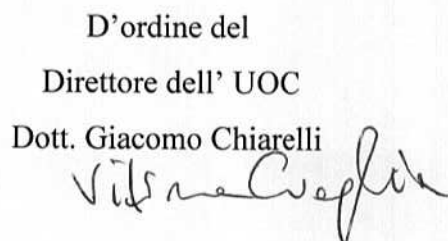 D'ordine del
Direttore dell' UOC
Dott. Giacomo Chiarelli